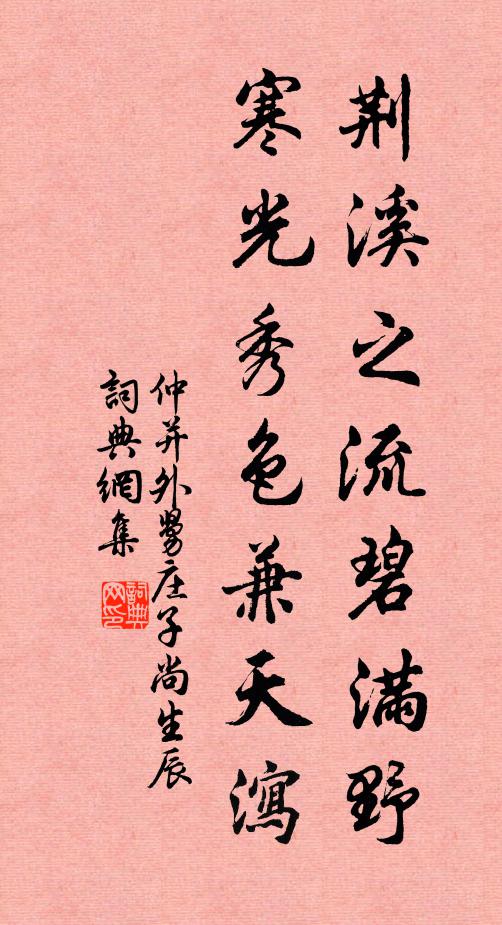 荆溪之流碧滿野
寒光秀色兼天瀉
仲并外舅庄子尚生辰
詞典網集
詞典网印